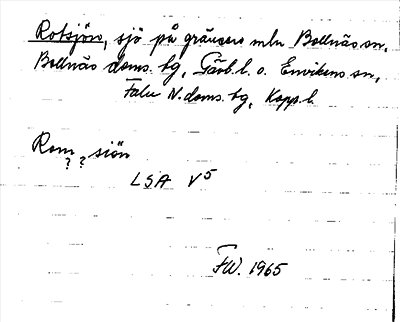 Rotsjön, sjö på gränsen mln Bollnäs sn,
Bollnäs doms. tg, Gävb. l. o. Envikens sn,
Falu N. doms. tg, Kopp. l.
Rom siön
? ?
LSA V5
FW. 1965